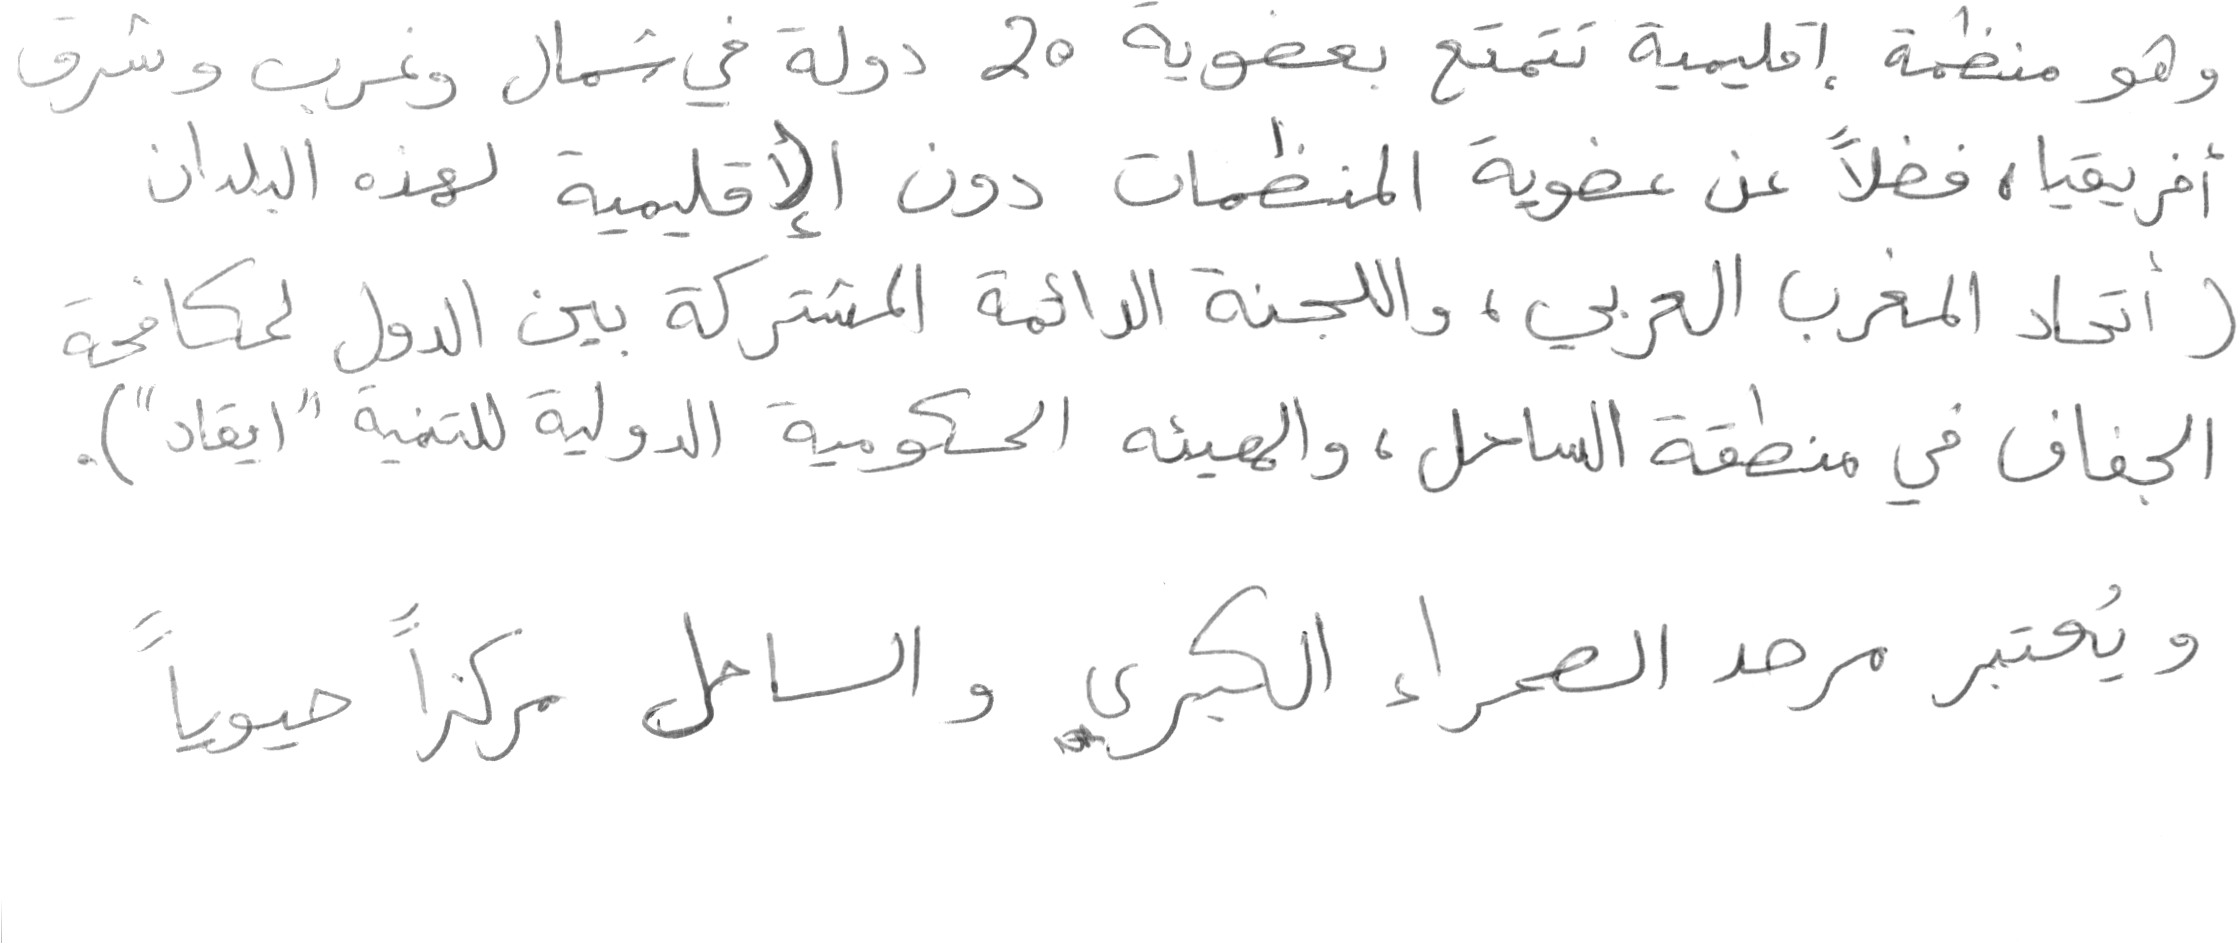 وهو منظمة إقليمية تتمتع بعضوية 20 دولة في شمال وغرب وشرق
أفريقيا، فضلاً عن عضوية المنظمات دون الإقليمية لهذه البلدان
(أتحاد المغرب العربي، واللجنة الدائمة المشتركة بين الدول لمكافحة
الجفاف في منطقة الساحل، والهيئه الحكومية الدولية للتنمية "ايقاد").
ويُعتبر مرصد الصحراء الكبرى والساحل مركزاً حيوياً